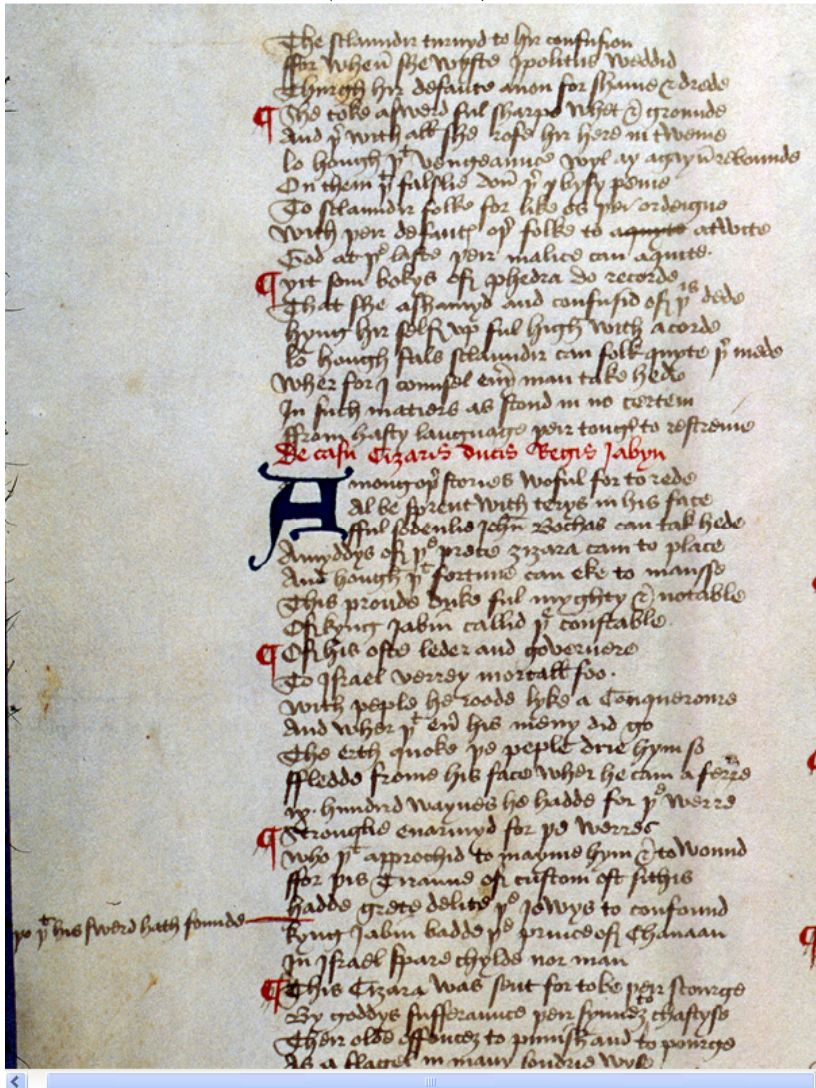 The sclaundir turnyd to hir confusion
ffor when she wyste ypolitus weddid
Thurgh hir defaute anon for shame & drede
She toke a swerd ful sharpe whet & grounde
And þer with all she rofe hir here in tweine
lo hough þt vengeaunce wyl ay agayn rebounde
On them þt falslie don þer bysy peine
To sclaundir folke for like os þei ordeigne
With þeir defaute oþer folke to aquyte atwite
God at þe laste þeir malice can aquite
yit som bokys of phedra do recorde
That she ashamyd and confusid of þis dede
hyng hir self vp ful high with a corde
lo hough fals sclaundir can folk quyte þer mede
Wher for I counsel euery man take hede
In such matiers as stond in no certein
ffrom hasty language þeir tongh to restreine
De casu Cizaris ducis Regis Jabyn
Among oþer stories woful for to rede
Al be sprent with terys in his face
fful sodenlie John Bochas can tak hede
Amyddys of þe prece zizara cam to place
And hough þt fortune can eke to manasse
This proude duke ful myghty & notable
Of kyng Jabin callid þe constable
Of his oste leder and governere
To Israel verrey mortall foo
With peple he roode lyke a Conqueroure
And wher þt euer his meny did go
The erth quoke þe peple drie hym so
ffledde frome his face wher he cam a ferre
ix hundird waynes he hadde for þe werre
Stronglie enarmyd for þe werres
Who þt approchid to mayme hym & to wound
ffor þis Tiraunt of custom oft sithis
hadde grete delite þe Jewys to confound
þt his swerd hath founde
kyng Jabin badde þe prince of Chanaan
In Israel spare chylde nor man
This Cizara was sent for to be þeir scourge
By goddys sufferaunce þeir synnez to chastyse
Their olde offencez to punish and to pourge
As a flagel in many soundrie wyse